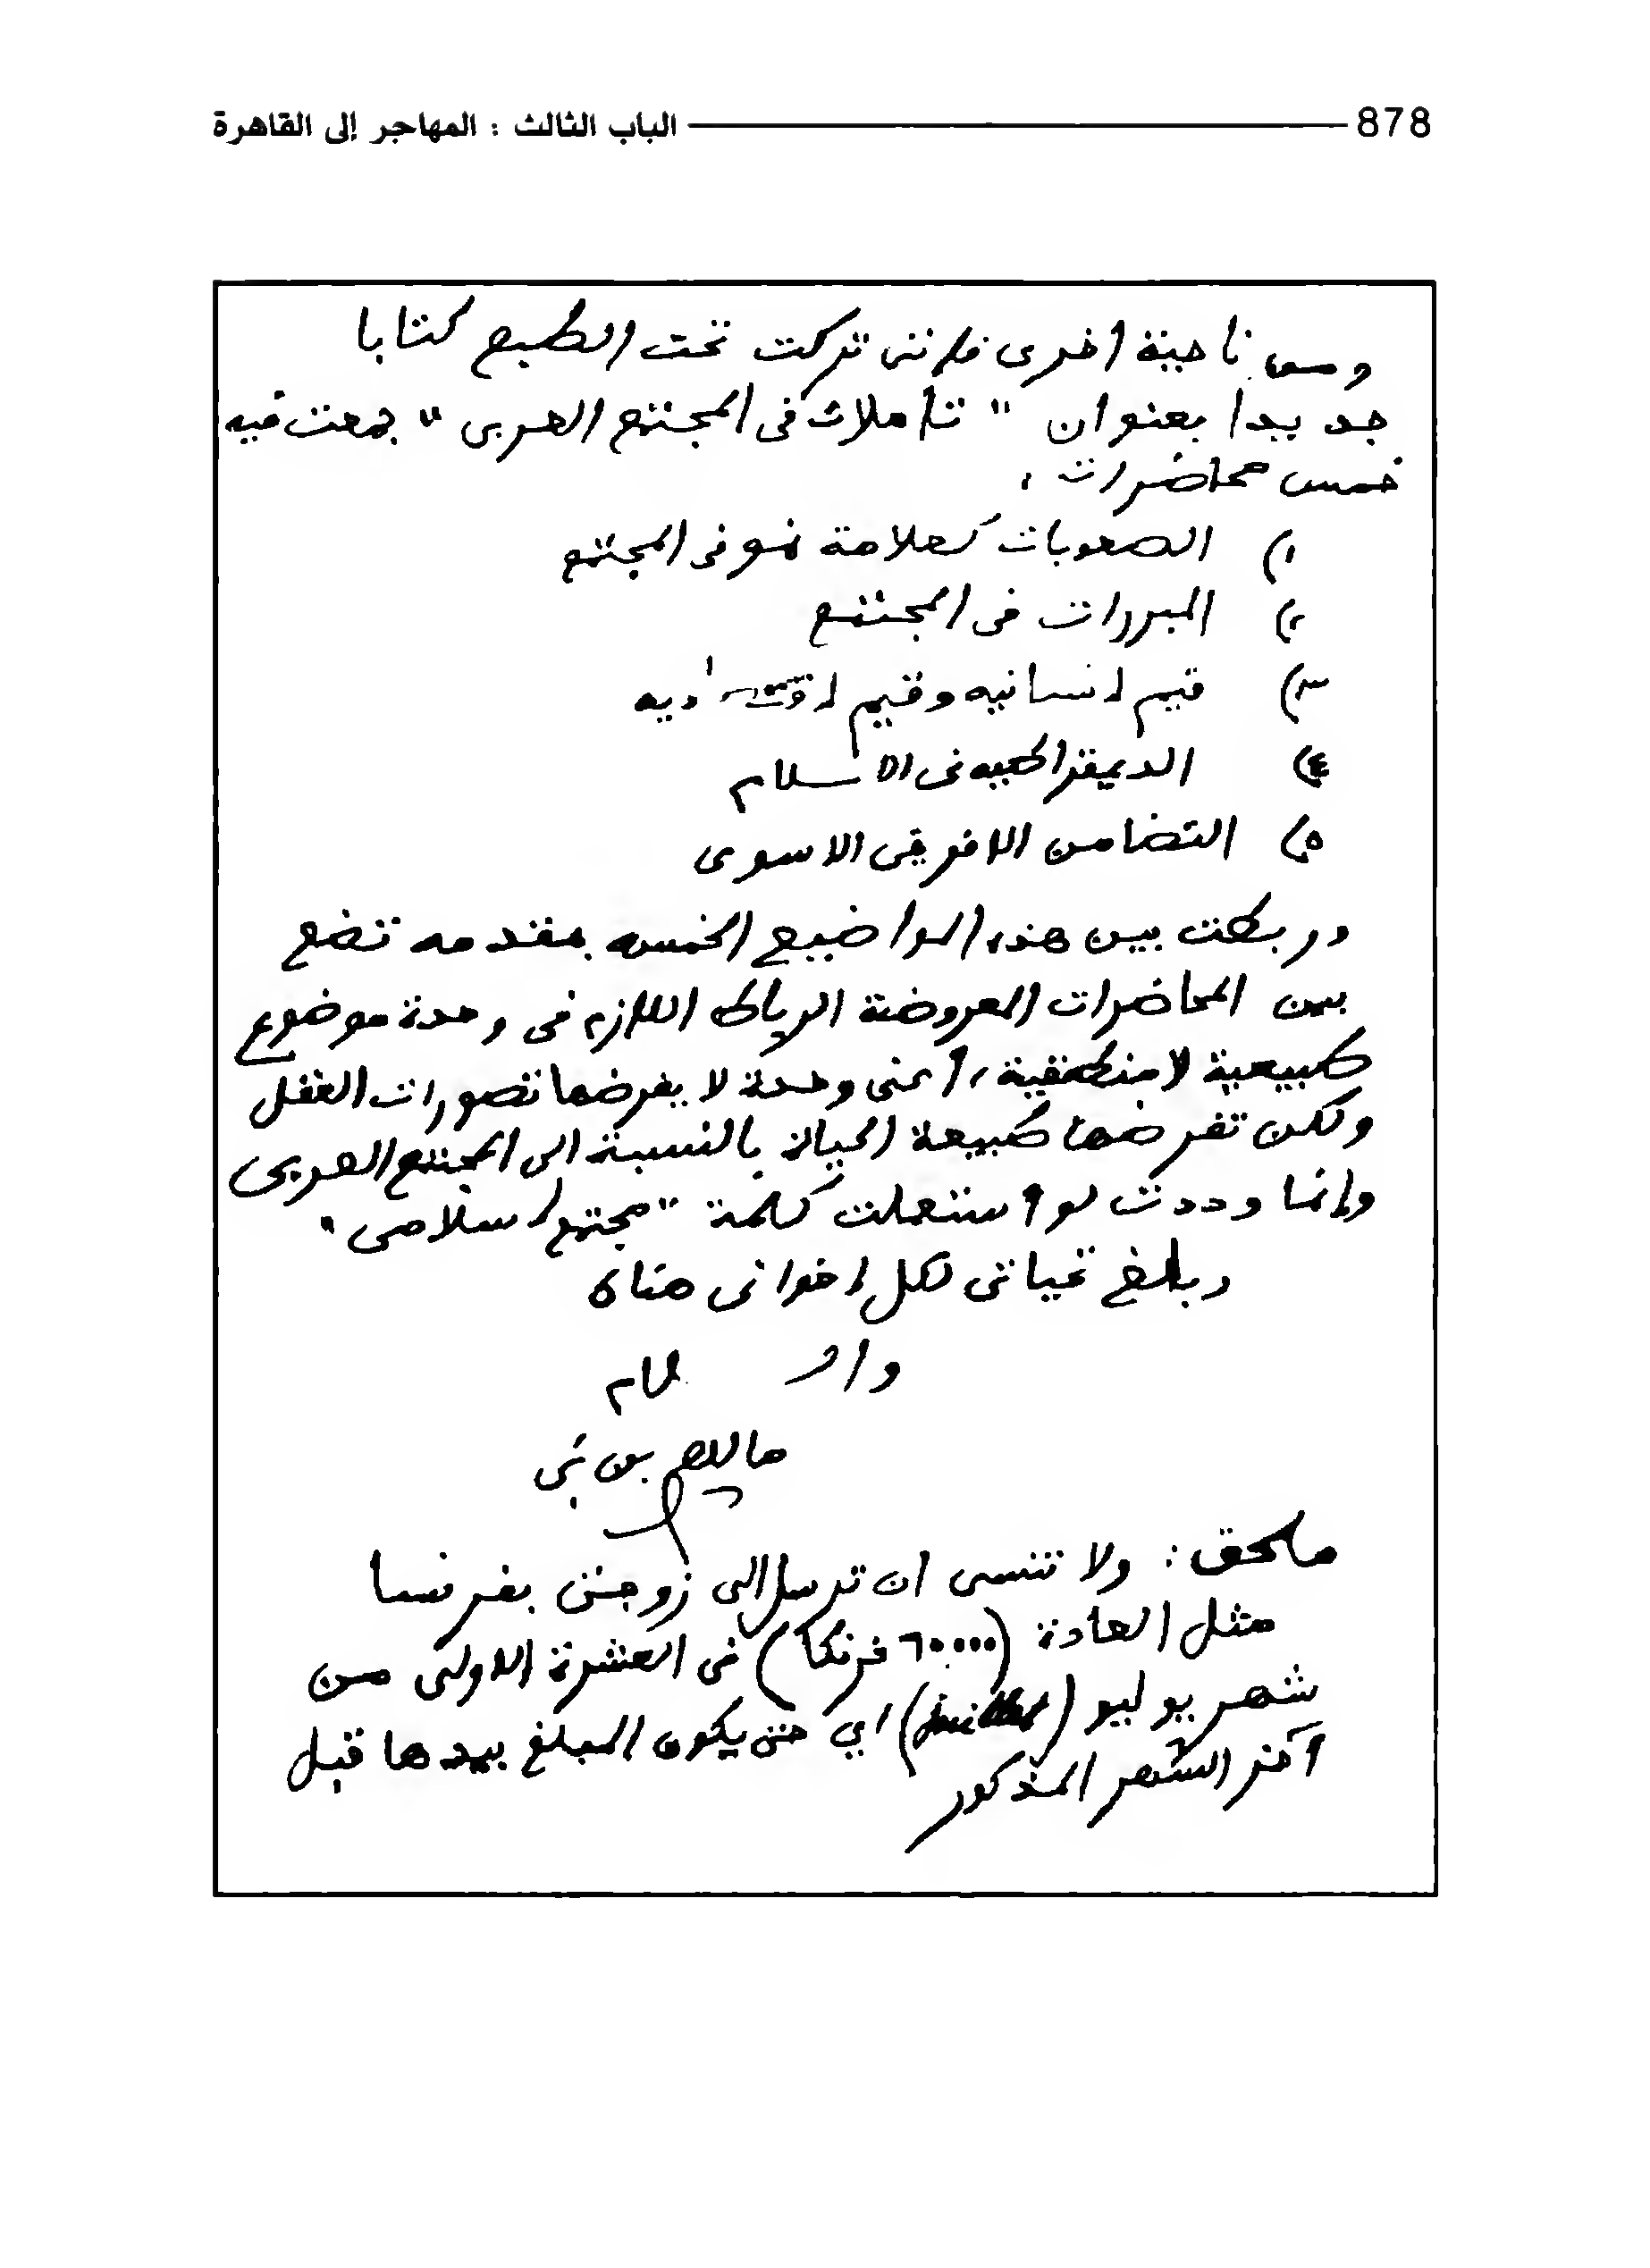 878 الباب الثالث : المهاجر إلى القاهرة
ومن ناحية أخرى فإنني تركت تحت الطبع كتابا
جديدا بعنوان " تأملات في المجتمع العربي " جمعت فيه
خمس محاضرات :
١) الصعوبات كعلامة نمو في المجتمع
٢) المبررات في المجتمع
٣) قيم إنسانيه وقيم إقتصاديه
٤) الديمقراطيه في الاسلام
٥) التضامن الافريقي الاسوي
وربطت بين هذه المواضيع الخمسه بمقدمه تضع
بين المحاضرات المعروضة الرباط اللازم في وحدة موضوع
طبيعية لا منطقية، أعني وحدة لا يفرضها تصورات العقل
ولكن تفرضها طبيعة الحياة بالنسبة الى المجتمع العربي
وإنما وددت لو أستعملت كلمة "مجتمع إسلامي"
وبلغ تحياتي لكل إخواني هناك
والسلام
مالك بن نبي
ملحق : ولا تنسى ان ترسل الى زوجتي بفرنسا
مثل العادة (٦٠.٠٠٠ فرنكا) في العشرة الاولى من
شهر يوليو (juillet) اي حتى يكون المبلغ بيدها قبل
آخر الشهر المذكور